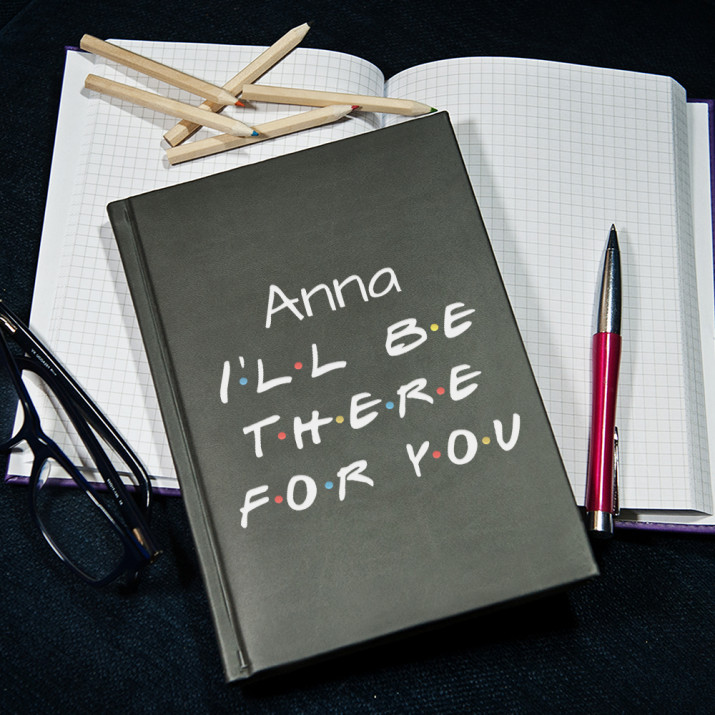 Anna
I'LL BE
THERE
FOR YOU